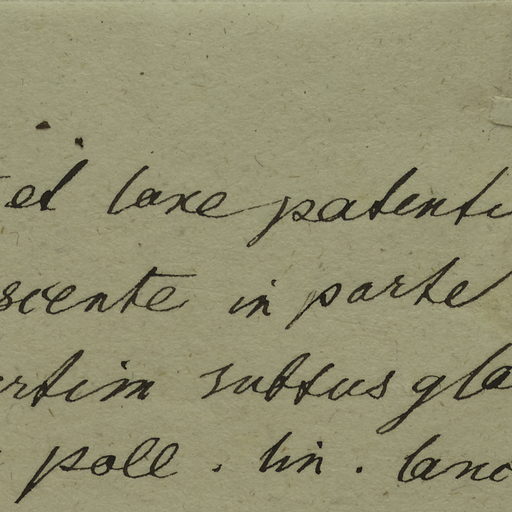 et laxe patenti
scente in parte
rtim subtus gla
poll. lin. lanc